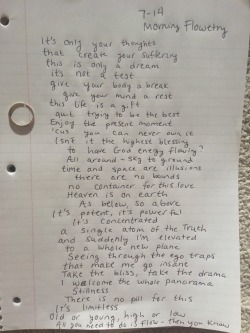 7-14
Morning Flowetry
It's only your thoughts
that create your suffering
this is only a dream
it's not a test
give your body a break
give your mind a rest
this life is a gift
quit trying to be the best
Enjoy the present moment
'cus you can never own it
Isn't it the highest blessing
to have God energy flowing?
All around - sky to ground
time and space are illusions
there are no bounds
no container for this love
Heaven is on earth
As below, so above
It's potent, it's powerful
It's concentrated
a single atom of the Truth
and suddenly I'm elevated
to a whole new plane
Seeing through the ego traps
that make me go insane
Take the bliss, take the drama
I welcome the whole panorama
Stillness
There is no pill for this
It's limitless
Old or young, high or low
All you need to do is flow - then you know